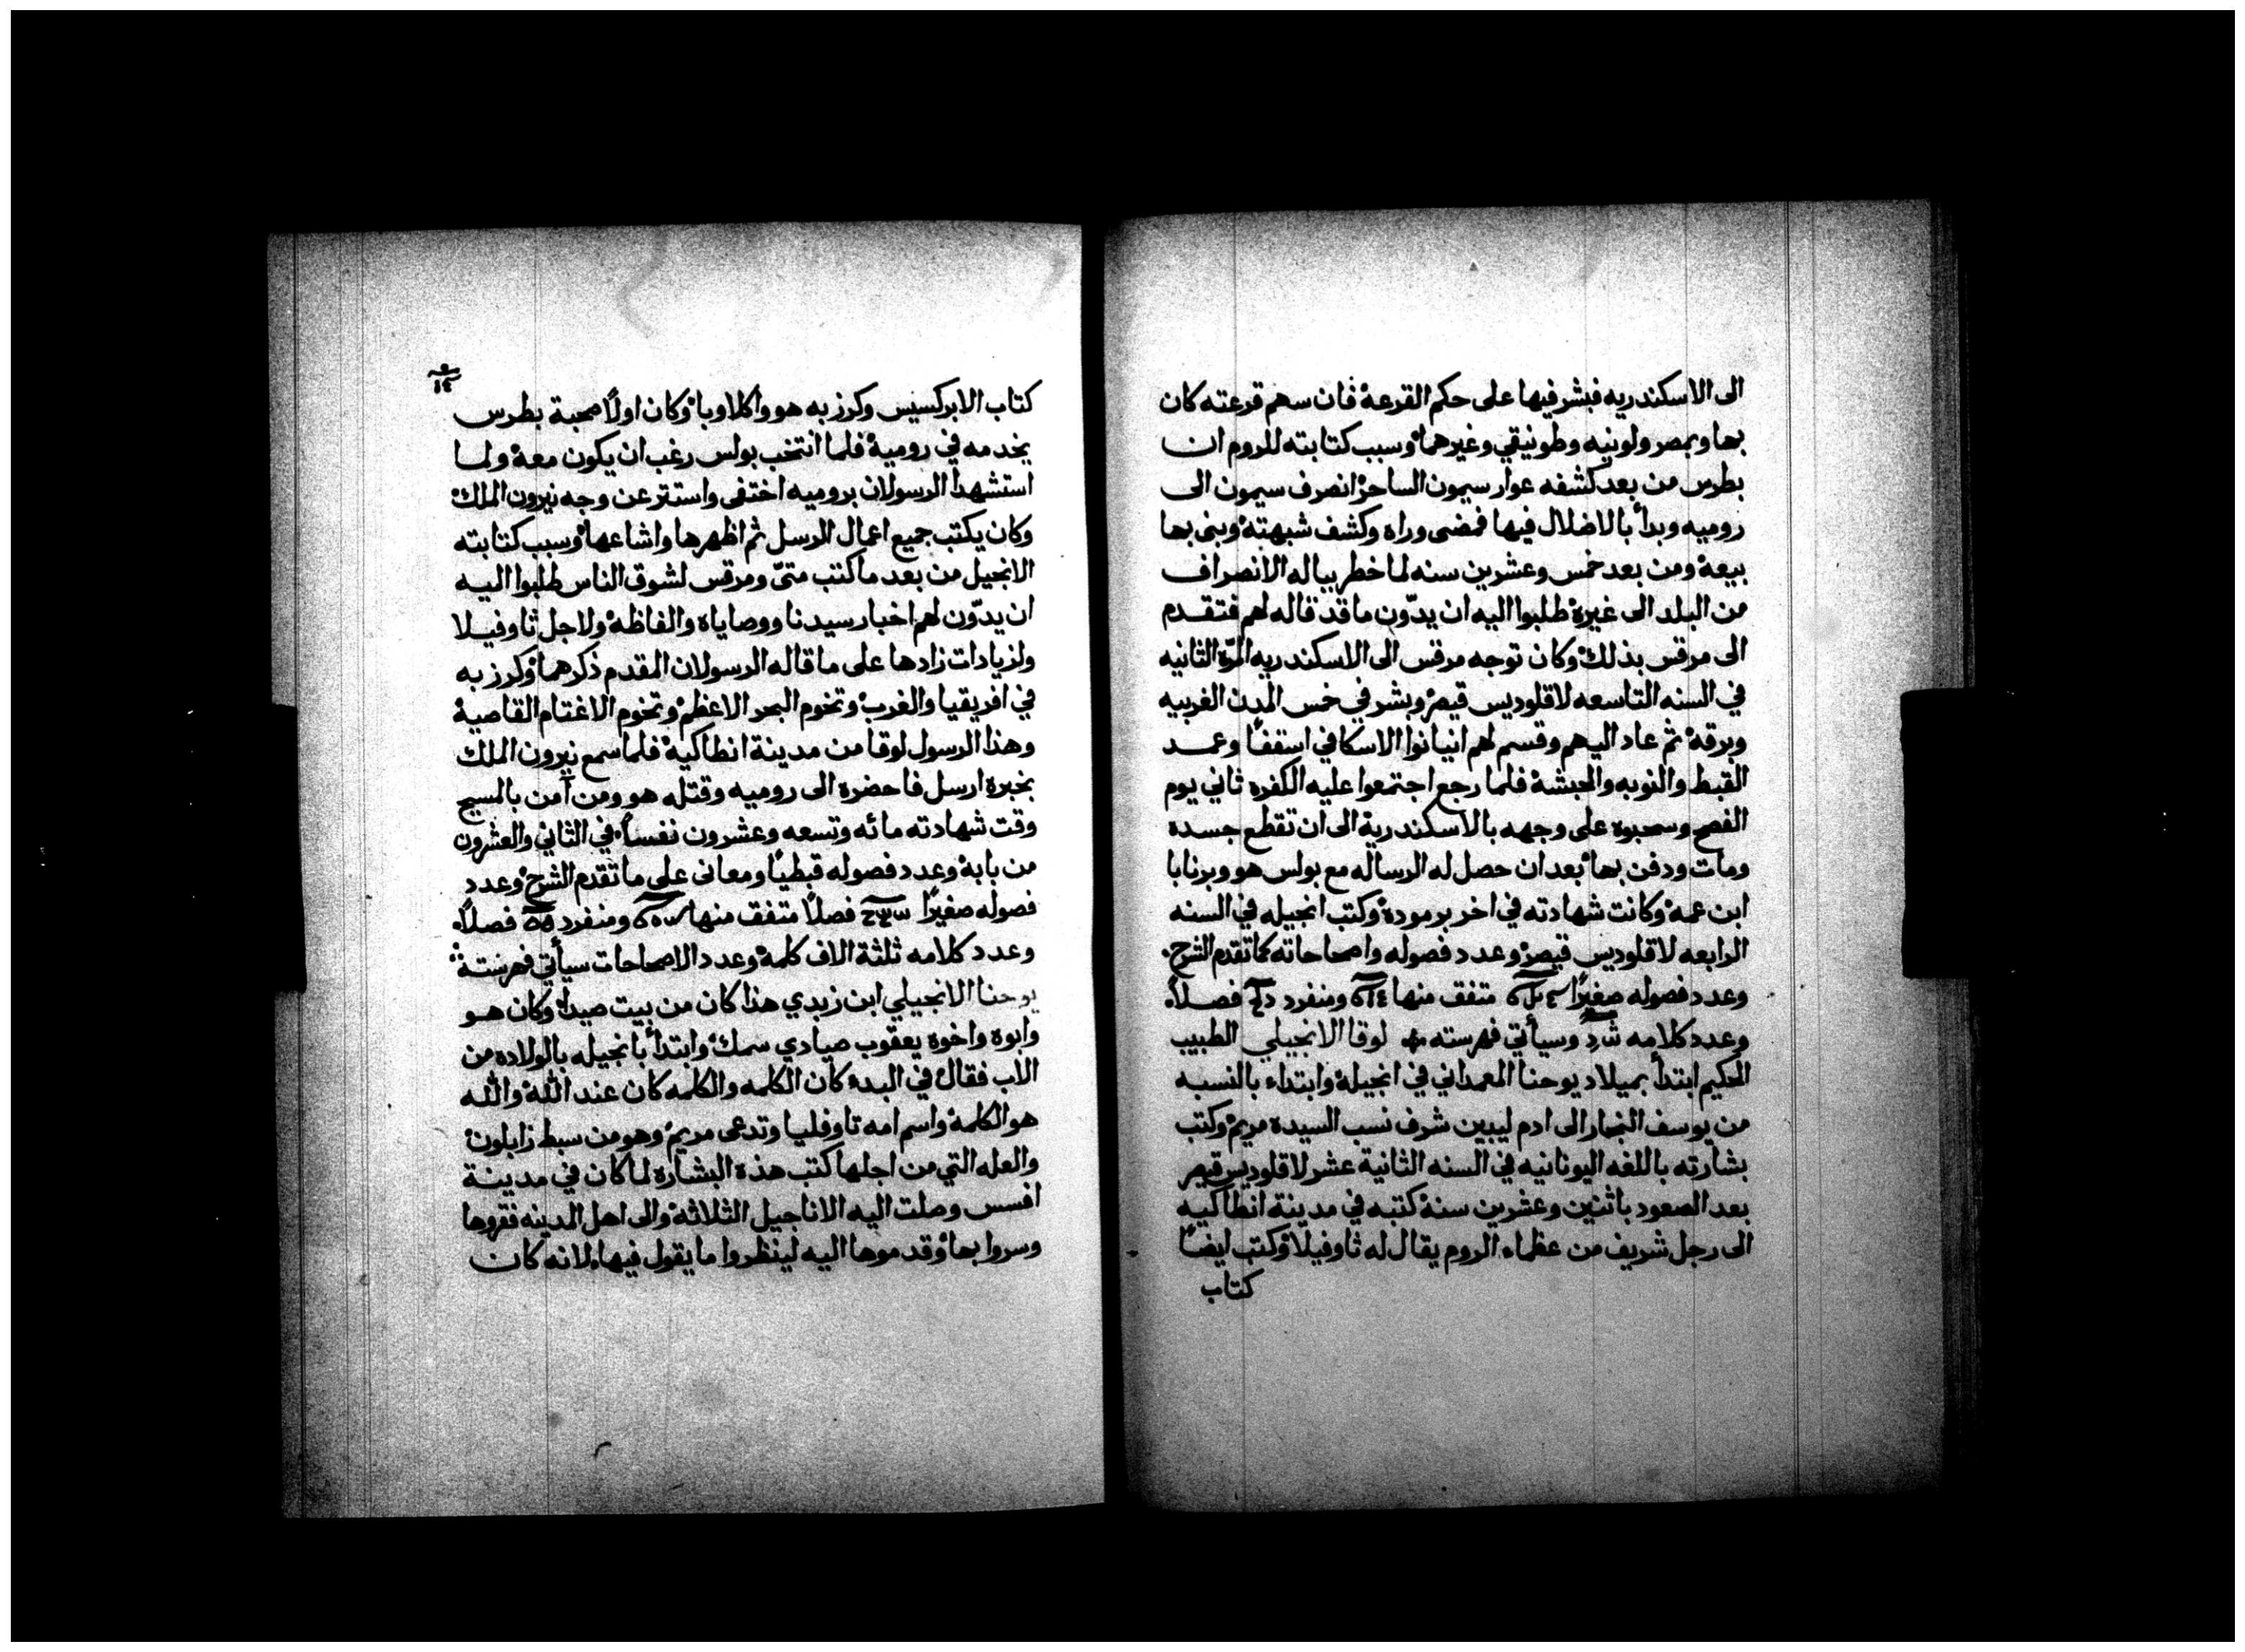 الى الاسكندريه فبشر فيها على حكم القرعة فان سهم قرعته كان
بها وبمصر ولونيه وطونيقي وغيرهما وسبب كتابته للروم ان
بطرس من بعد كشفه عوار سيمون الساحر انصرف سيمون الى
روميه وبدأ بالاضلال فيها فمضى وراه وكشف شبهته وبنى بها
بيعة ومن بعد خمس وعشرين سنه لما خطر بباله الانصراف
من البلد الى غيرة طلبوا اليه ان يدوّن ما قد قاله لهم فتقدم
الى مرقس بذلك وكان توجه مرقس الى الاسكندريه المرّة الثانيه
في السنه التاسعه لاقلوديس قيصر وبشر في خمس المدن الغربيه
وبرقة ثم عاد اليهم وقسم لهم انيانوا الاسكافي اسقفًا وعمد
القبط والنوبه والحبشة فلما رجع اجتمعوا عليه الكفره ثاني يوم
الفصح وسحبوه على وجهه بالاسكندرية الى ان تقطع جسده
ومات ودفن بها بعد ان حصل له الرساله مع بولس هو وبرنابا
ابن عمه وكانت شهادته في اخر برمودة وكتب انجيله في السنه
الرابعه لاقلوديس قيصر وعدد فصوله واصحاحاته كما تقدم الشرح
وعدد فصوله صغيرًا متفق منها ومنفرد فصلاً
وعدد كلامه وسيأتي فهرسته لوقا الانجيلي الطبيب
الحكيم ابتدأ بميلاد يوحنا المعمداني في انجيله وابتداء بالنسبه
من يوسف النجار الى ادم ليبين شرف نسب السيدة مريم وكتب
بشارته باللغه اليونانيه في السنه الثانية عشر لاقلوديس قيصر
بعد الصعود باثنين وعشرين سنة كتبه في مدينة انطاكيه
الى رجل شريف من عظماء الروم يقال له ثاوفيلا وكتب ايضًا
كتاب
كتاب الابركسيس وكرز به هو واكلاوبا وكان اولاً صحبة بطرس
يخدمه في رومية فلما انتخب بولس رغب ان يكون معة ولما
استشهدا الرسولان بروميه اختفى واستتر عن وجه نيرون الملك
وكان يكتب جميع اعمال الرسل ثم اظهرها واشاعها وسبب كتابته
الانجيل من بعد ما كتب متىّ ومرقس لشوق الناس طلبوا اليه
ان يدوّن لهم اخبار سيدنا ووصاياه والفاظه ولاجل ثاوفيلا
ولزيادات زادها على ما قاله الرسولان المقدم ذكرهما وكرز به
في افريقيا والغرب وتخوم البحر الاعظم وتخوم الاغتام القاصية
وهذا الرسول لوقا من مدينة انطاكية فلما سمع نيرون الملك
بخبرة ارسل فاحضرة الى روميه وقتله هو ومن آمن بالمسيح
وقت شهادته مائه وتسعه وعشرون نفسًا في الثاني والعشرون
من بابة وعدد فصوله قبطيًا ومعانى على ما تقدم الشرح وعدد
فصوله صغيرًا فصلاً متفق منها ومنفرد فصلاً
وعدد كلامه ثلثة الاف كلمة وعدد الاصحاحات سيأتي فهرستة
يوحنا الانجيلي ابن زبدي هذا كان من بيت صيدا وكان هو
وابوه واخوة يعقوب صيادي سمك وابتدأ بانجيله بالولاده من
الاب فقال في البدء كان الكلمه والكلمه كان عند الله والله
هو الكلمة واسم امه تاوفليا وتدعى مريم وهو من سبط زابلون
والعله التي من اجلها كتب هذه البشاره لما كان في مدينة
افسس وصلت اليه الاناجيل الثلاثة والى اهل المدينه فقروها
وسروا بها وقدموها اليه لينظروا ما يقول فيها لانه كان